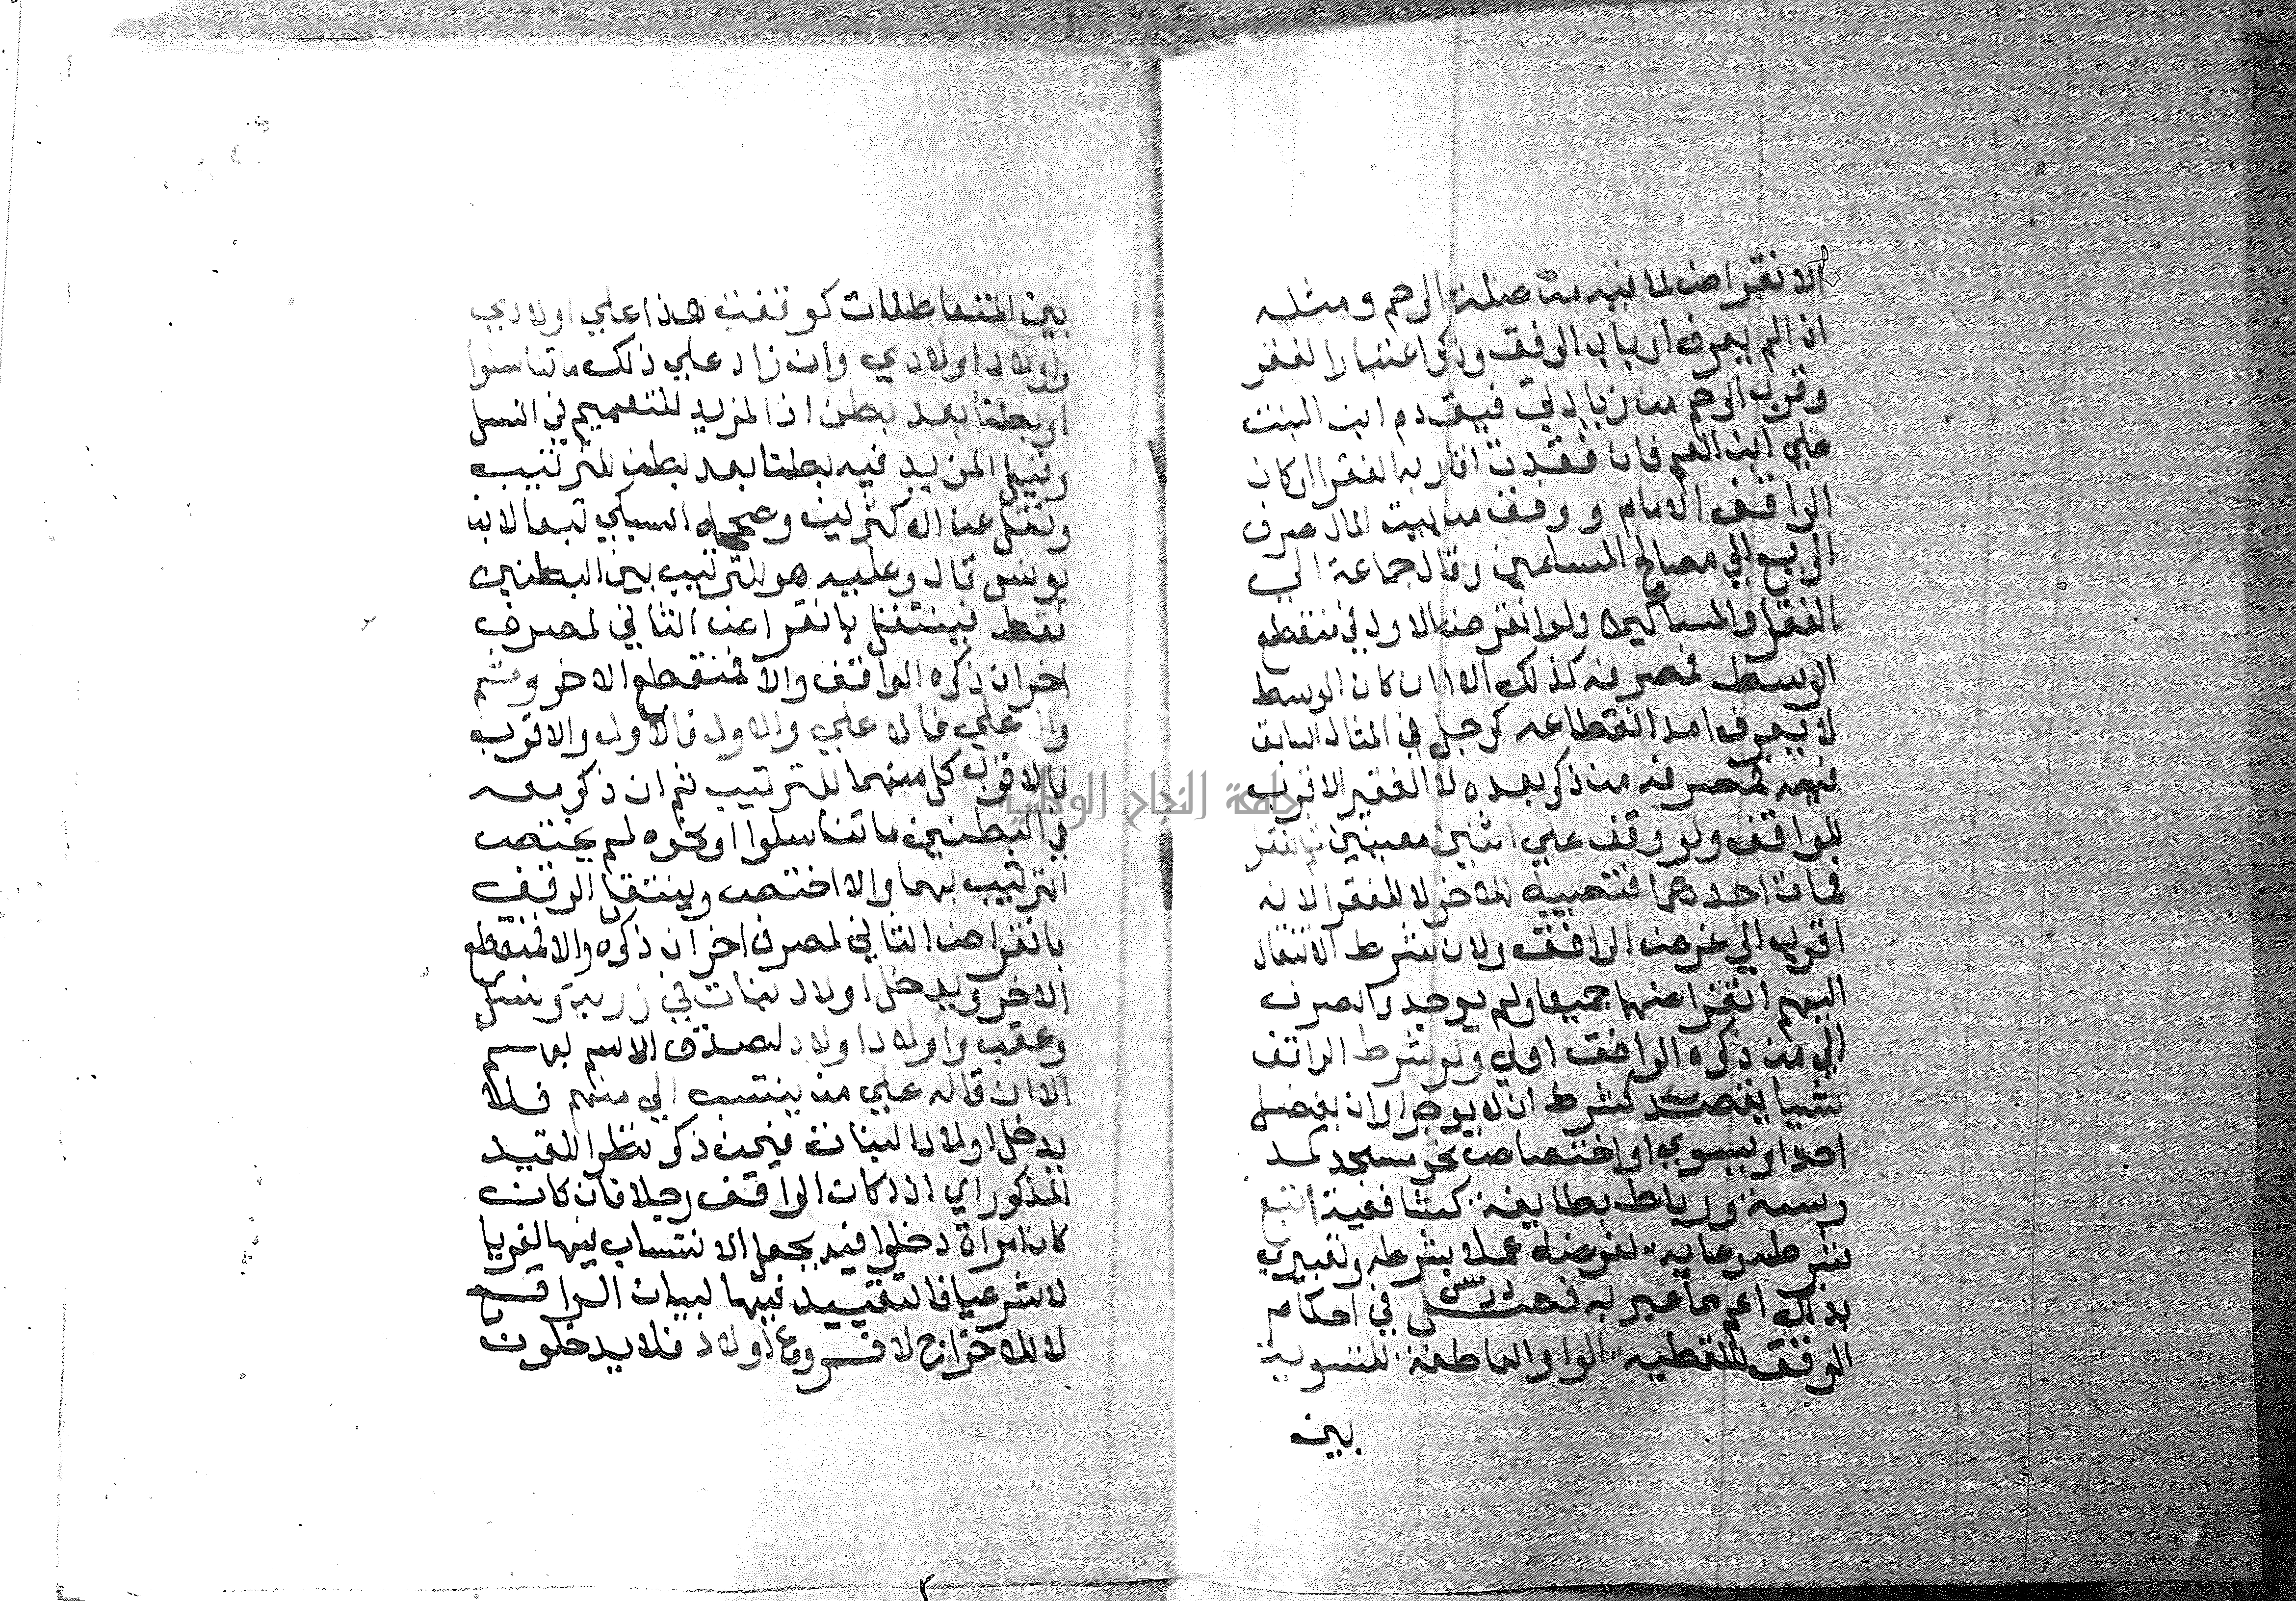 الانقراض لما فيه من صلة الرحم ومثله
اذا لم يعرف ارباب الوقف وذكر اعتبار الفقر
وقرب الرحم من زيادتي فيقدم ابن البنت
علي ابن العم فان فقدت اقاربه الفقرا او كان
الواقف الامام ووقف من بيت المال صرف
الريع الي مصالح المسلمين وقال جماعة الي
الفقرا والمساكين ولو انقرض الاول في منقطع
الوسط فمصرفه كذلك الا ان كان الوسط
لا يعرف امد انقطاعه كرجل في المثال السابق
فمصرفه من ذكر بعده لا الفقير الاقرب
للواقف ولو وقف علي اثنين معينين ثم الفقرا
فمات احدهما فنصيبه للاخر لا للفقرا لانه
اقرب الي غرض الواقف ولان شرط الانتقال
اليهم انقراضهما جميعا ولم يوجد والصرف
الي من ذكره الواقف اولي ولو شرط الواقف
شيا يقصد كشرط ان لا يوجر او ان يفضل
احدا او يسوي او اختصاص نحو مسجد كمد
رسة ورباط بطايفة كشافعية اتبع
شرطه رعاية لغرضه عملا بشرطه وتعبيري
بذلك اعم مما عبر به فصل في احكام
الوقف اللفظية الواو العاطفة للتسوية
بين
بين المتعاطفات كوقفت هذا علي اولادي
واولاد اولادي وان زاد علي ذلك ما تناسلوا
او بطنا بعد بطن اذ المزيد للتعميم في النسل
وقيل المزيد فيه بطنا بعد بطن للترتيب
ونقل عن الاكثرين وصححه السبكي تبعا لابن
يونس قال وعليه هو للترتيب بين البطنين
فقط فينتقل بانقراض الثاني لمصرف
اخر ان ذكره الواقف والا فمنقطع الاخر وثم
والاعلي فالاعلي والاول فالاول والاقرب
فالاقرب كل منهما للترتيب ثم ان ذكر معه
في البطنين ما تناسلوا او نحوه لم يختص
الترتيب بهما والا اختص وينتقل الوقف
بانقراض الثاني لمصرف اخر ان ذكره والا فمنقطع
الاخر ويدخل اولاد بنات في ذرية ونسل
وعقب واولاد اولاد لصدق الاسم بهم
الا ان قال علي من ينتسب الي منهم فلا
يدخل اولاد البنات فيمن ذكر نظرا للقيد
المذكور اي اذا كان الواقف رجلا فان كانت
كان امراة دخلوا فيه بجعل الانتساب فيها لغويا
لا شرعيا فالتقييد فيها لبيان الواقع
لا للاخراج لا فروع اولاد فلا يدخلون
جامعة النجاح الوطنية